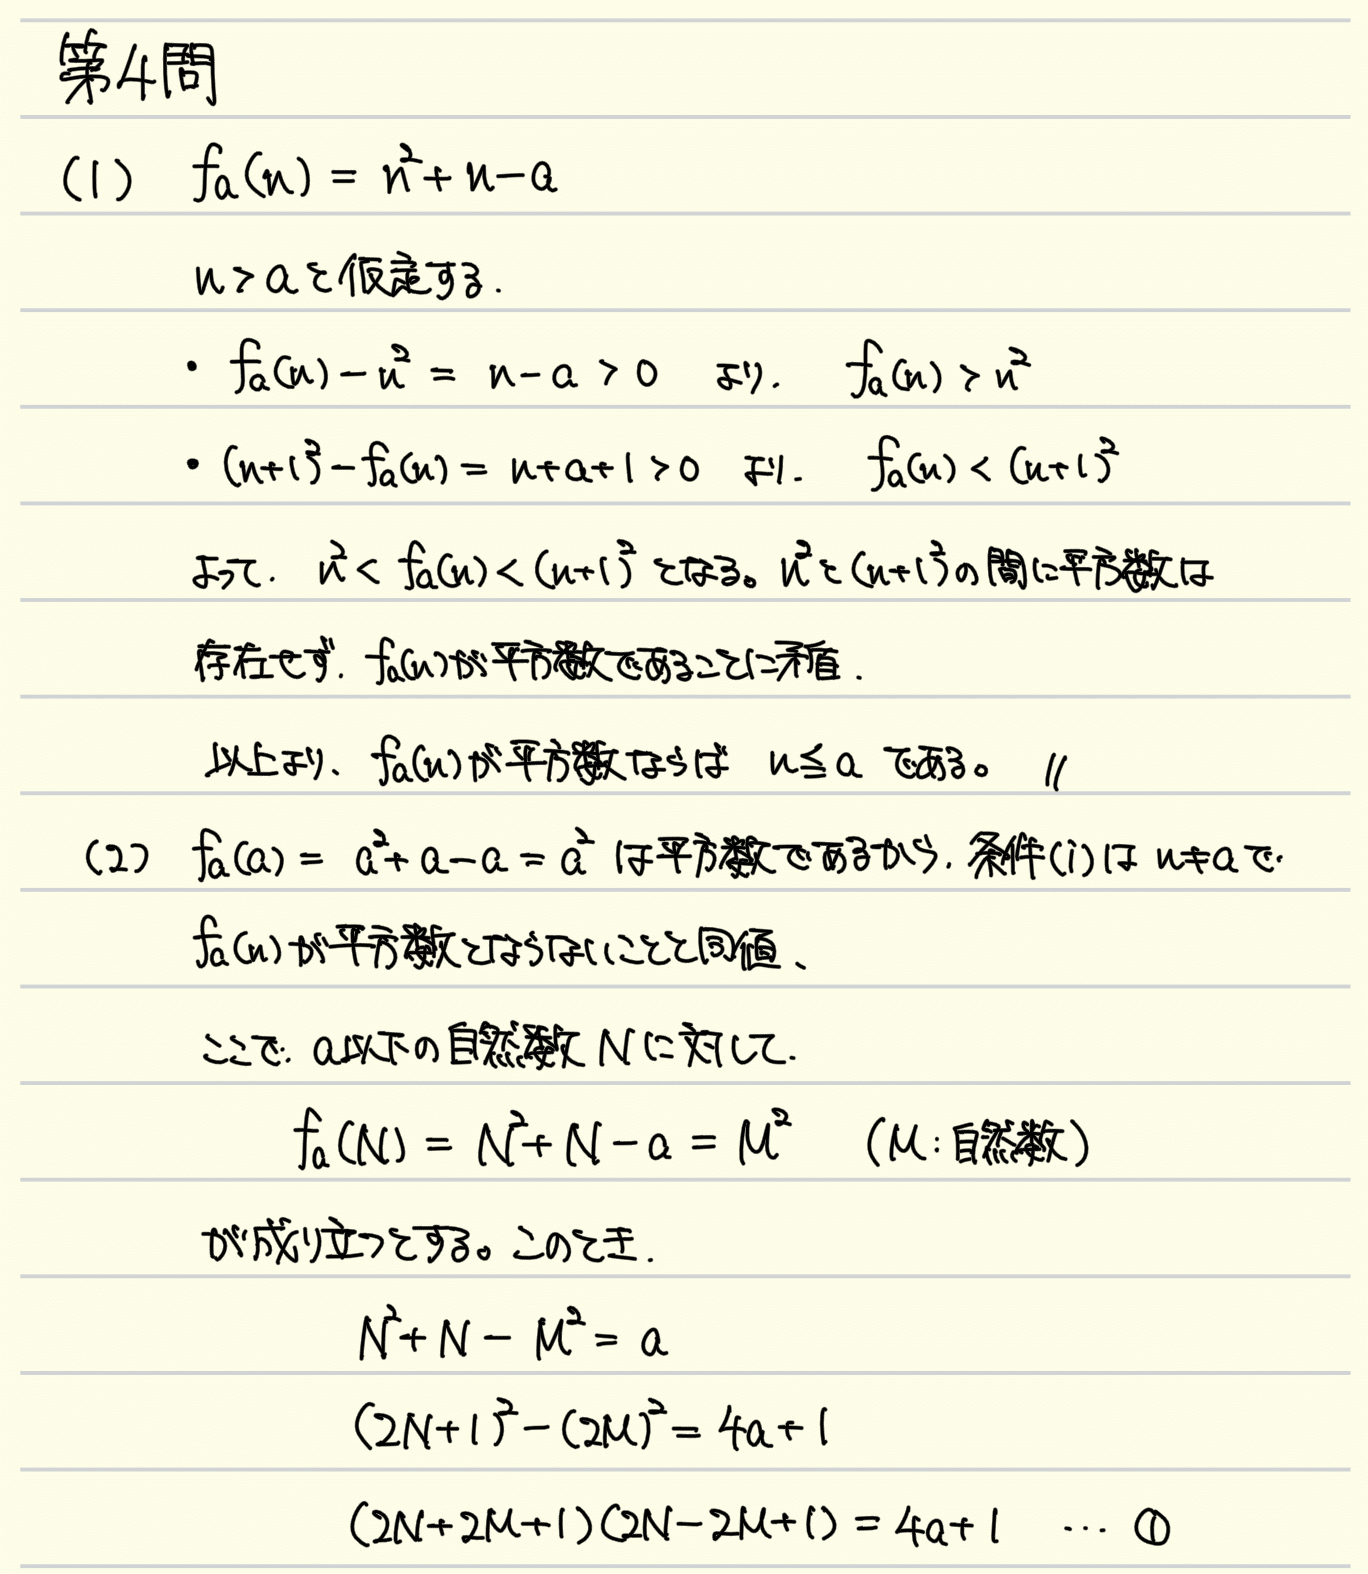 第4問
(1) fₐ(n) = n² + n - a
n > a と仮定する.
・ fₐ(n) - n² = n - a > 0 より. fₐ(n) > n²
・ (n+1)² - fₐ(n) = n + a + 1 > 0 より. fₐ(n) < (n+1)²
よって. n² < fₐ(n) < (n+1)² となる。n² と (n+1)² の間に平方数は
存在せず. fₐ(n)が平方数であることに矛盾.
以上より、fₐ(n)が平方数ならば n ≦ a である。 //
(2) fₐ(a) = a² + a - a = a² は平方数であるから. 条件(i)は n ≠ a で.
fₐ(n)が平方数とならないことと同値、
ここで. a以下の自然数 N に対して.
fₐ(N) = N² + N - a = M² (M:自然数)
が成り立つとする。このとき.
N² + N - M² = a
(2N+1)² - (2M)² = 4a+1
(2N+2M+1)(2N-2M+1) = 4a+1 … ①